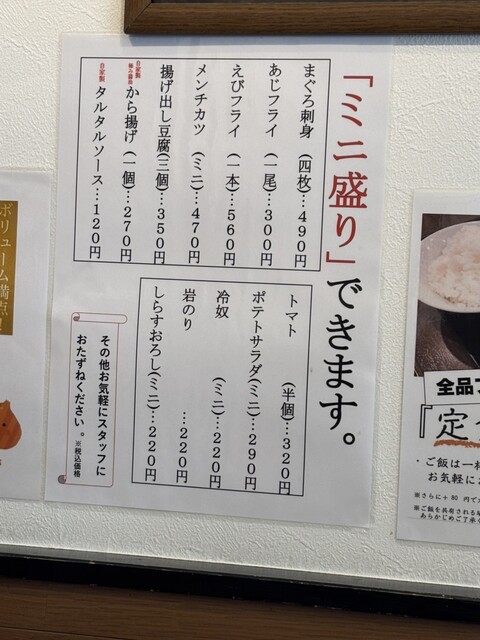 「ミニ盛り」できます。
まぐろ刺身（四枚）…490円
あじフライ（一尾）…300円
えびフライ（一本）…560円
メンチカツ（ミニ）…470円
揚げ出し豆腐(三個)…350円
から揚げ（一個）…270円
自家製
タルタルソース…120円
トマト（半個）…320円
ポテトサラダ(ミニ)…290円
冷奴（ミニ）…220円
岩のり…220円
しらすおろし(ミニ)…220円
その他お気軽にスタッフに
おたずねください。※税込価格
ボリューム満点！
全品
『定
・ご飯は一杯
お気軽にお
※さらに＋80円で
※ご飯を共有される
あらかじめご了承く